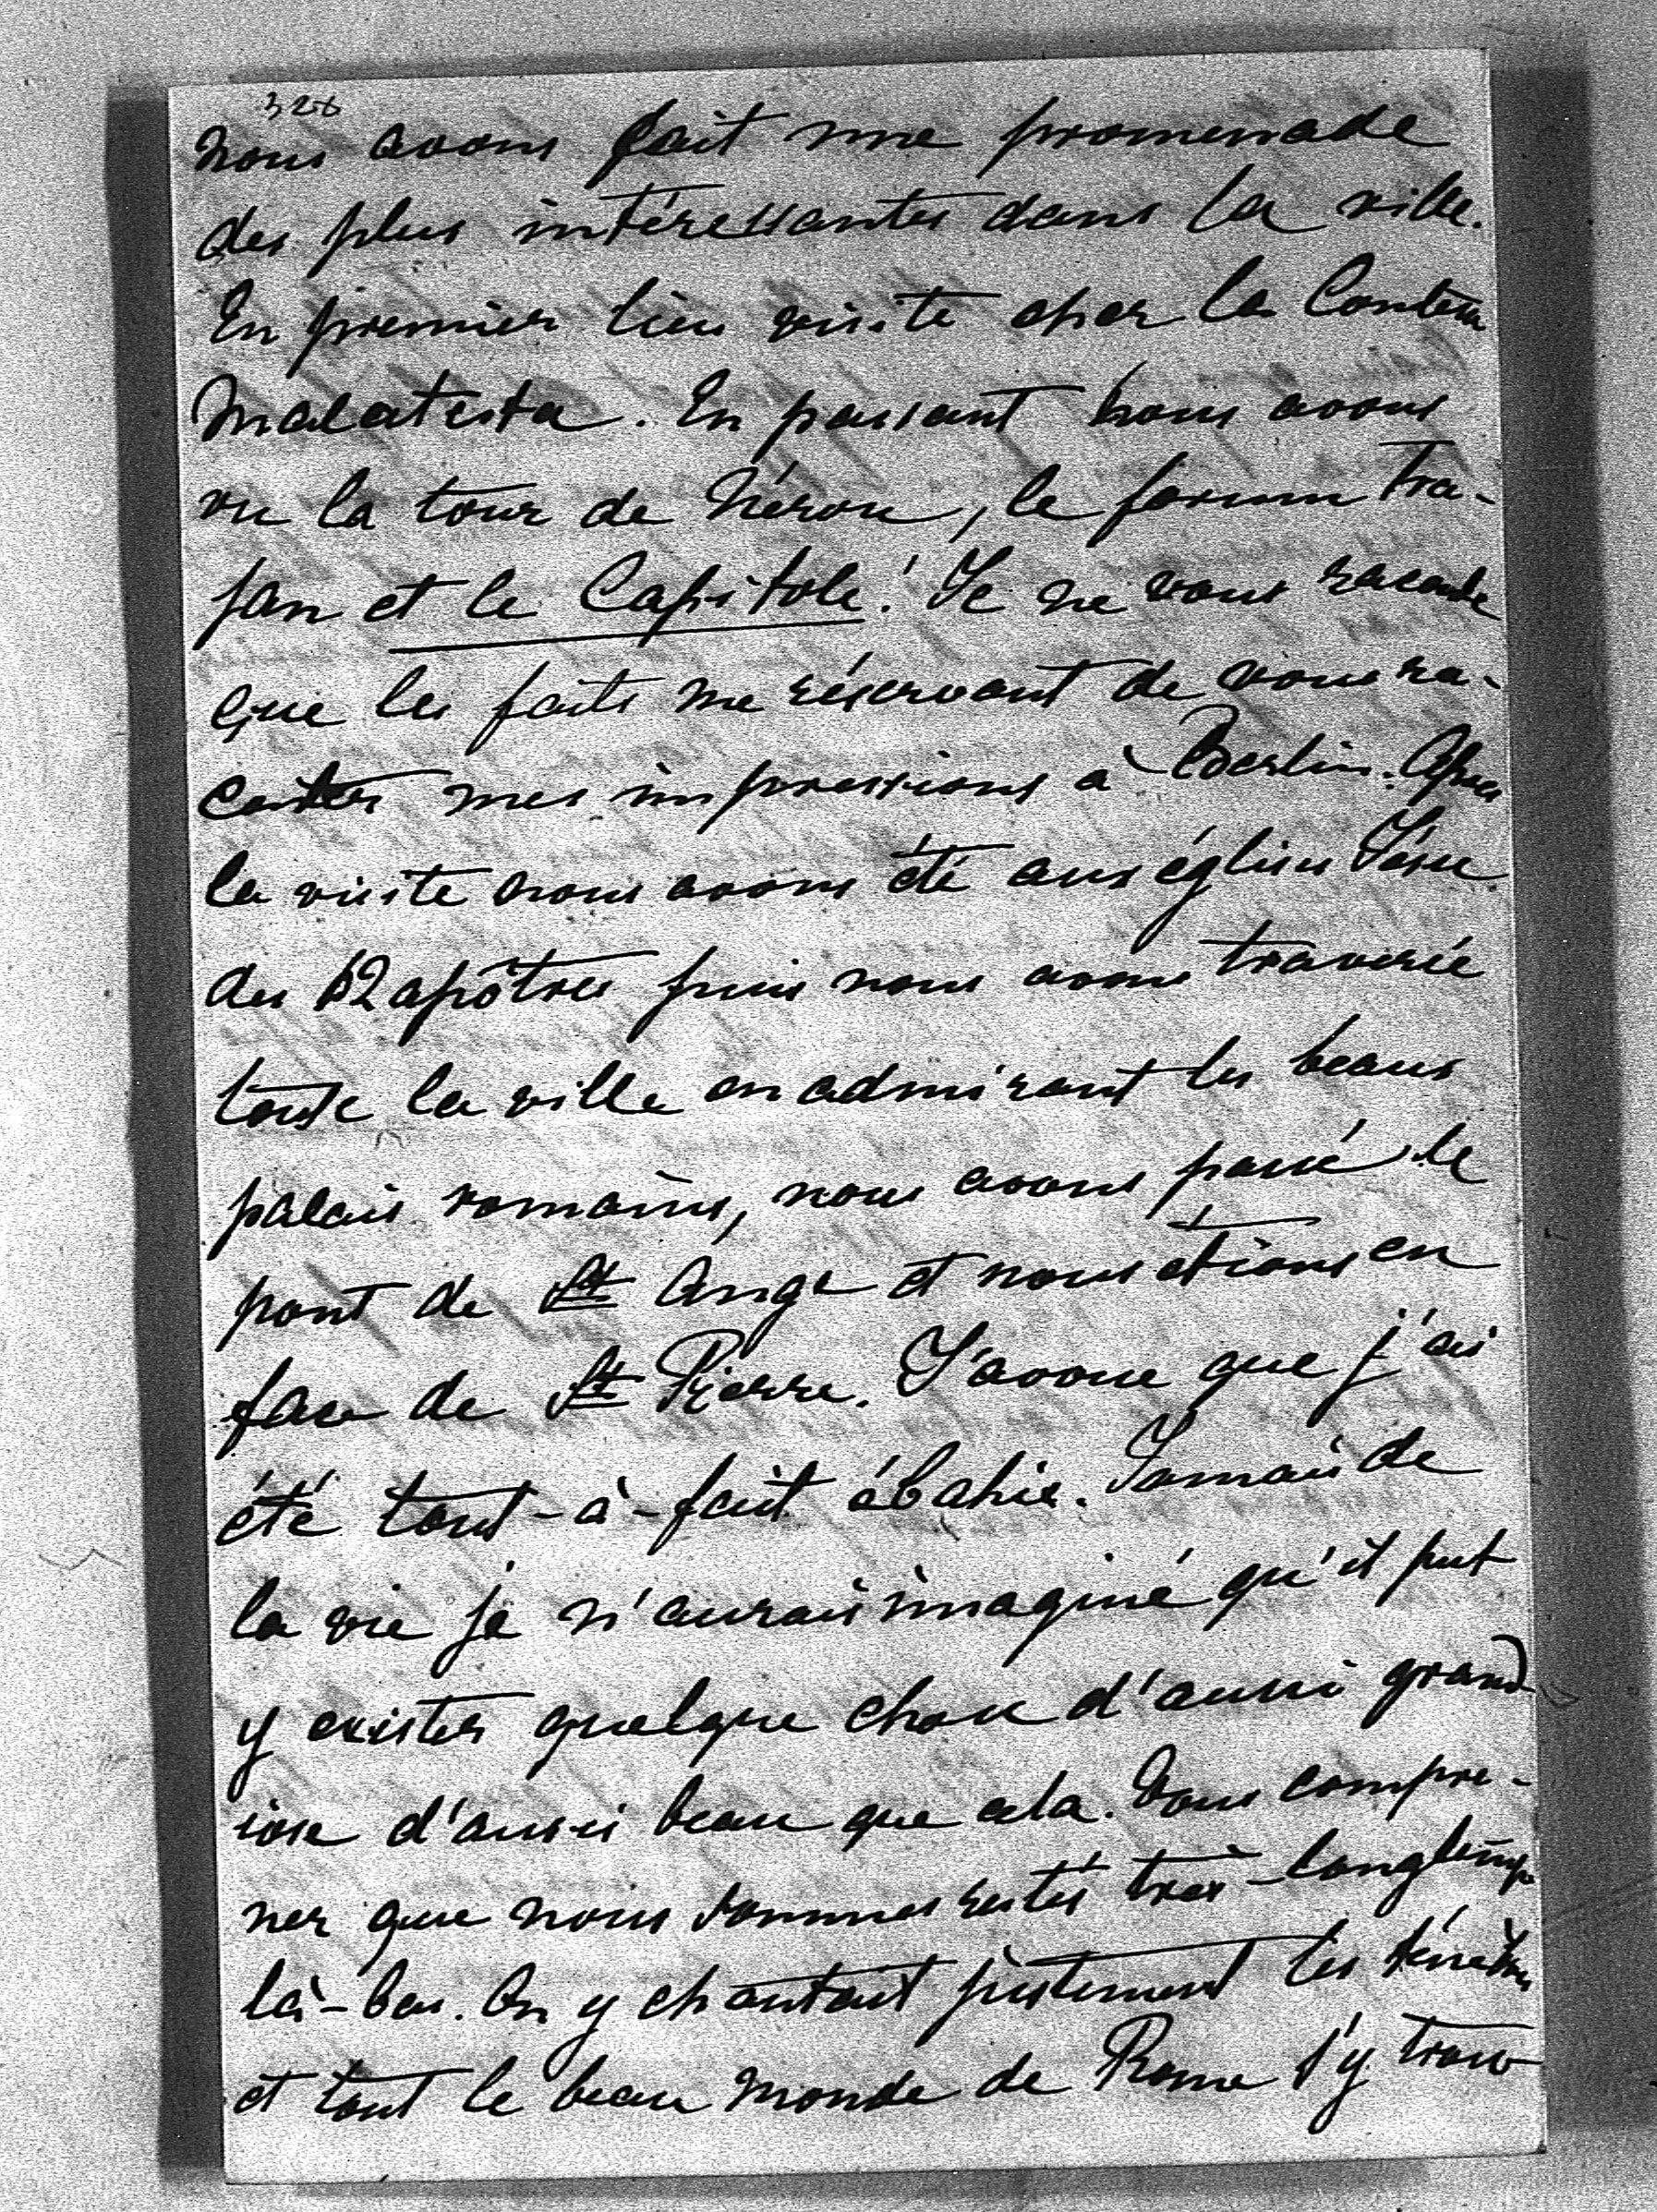 326
nous avons fait une promenade
des plus intéressantes dans la ville.
En premier lieu visite chez la Comtesse
Malatesta. En passant nous avons
vu la tour de Néron, le forum Tra-
jan et le Capitole! Je ne vous raconte
que les faits me réservant de vous ra-
conter mes impressions à Berlin. Après
la visite nous avons été aux églises Jésu
des 12 apôtres puis nous avons traversée
toute la ville en admirant les beaux
palais romains, nous avons passé le
pont de St Ange et nous étions en
face de St Pierre. J'avoue que j'ai
été tout-à-fait ébahie. Jamais de
la vie je n'aurais imaginé qu'il put
y exister quelque chose d'aussi grand
iose d'aussi beau que cela. Vous compre-
nez que nous sommes restés très-longtemps
là-bas. On y chantait justement les ténèbres
et tout le beau monde de Rome s'y trouv